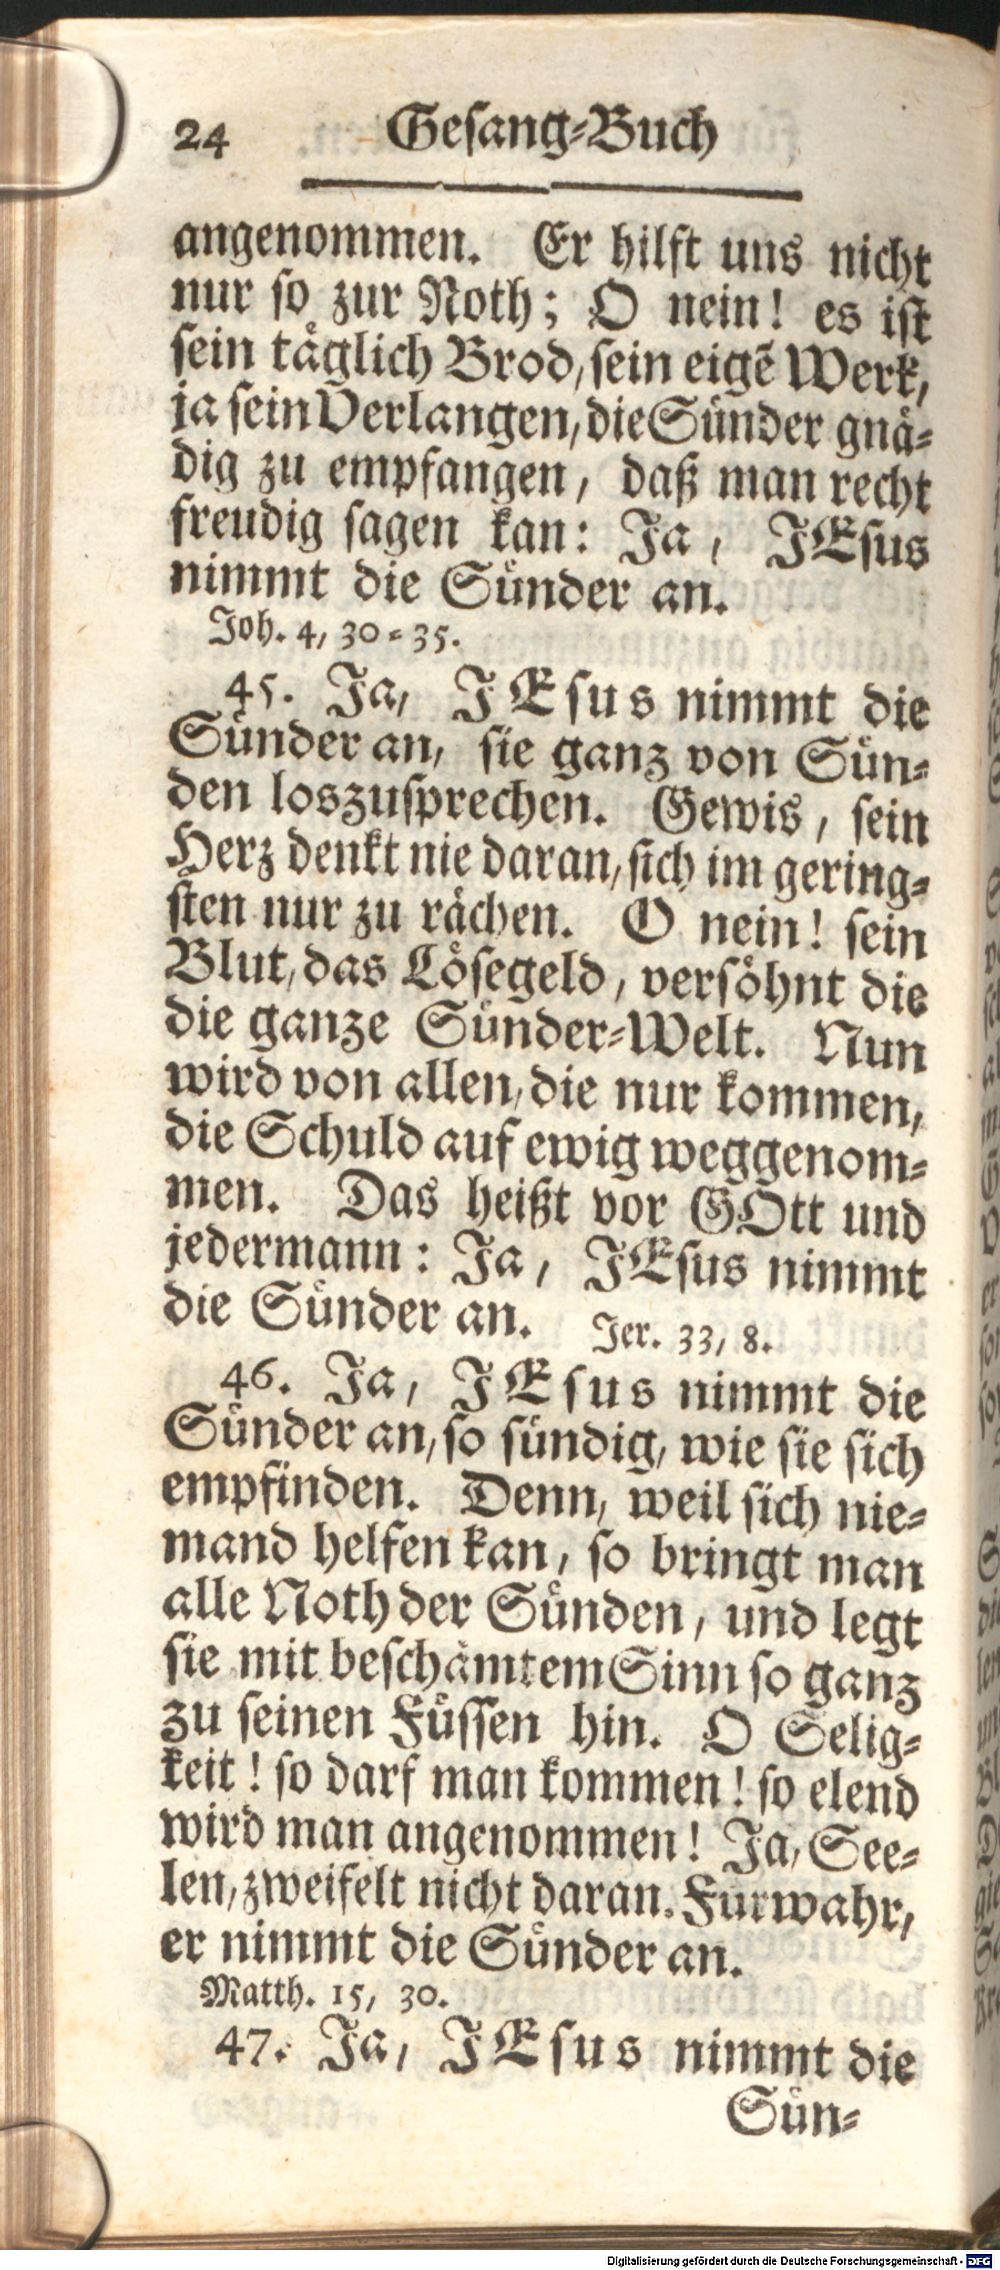 24 Gesang-Buch
angenommen. Er hilft uns nicht
nur so zur Noth; O nein! es ist
sein täglich Brod, sein eigē Werk,
ja sein Verlangen, die Sünder gnä-
dig zu empfangen, daß man recht
freudig sagen kan: Ja, JEsus
nimmt die Sünder an.
Joh. 4, 30-35.
45. Ja, JEsus nimmt die
Sünder an, sie ganz von Sün-
den loszusprechen. Gewis, sein
Herz denkt nie daran, sich im gering-
sten nur zu rächen. O nein! sein
Blut, das Lösegeld, versöhnt die
die ganze Sünder-Welt. Nun
wird von allen, die nur kommen,
die Schuld auf ewig weggenom-
men. Das heißt vor GOtt und
jedermann: Ja, JEsus nimmt
die Sünder an. Jer. 33, 8.
46. Ja, JEsus nimmt die
Sünder an, so sündig, wie sie sich
empfinden. Denn, weil sich nie-
mand helfen kan, so bringt man
alle Noth der Sünden, und legt
sie mit beschämtem Sinn so ganz
zu seinen Füssen hin. O Selig-
keit! so darf man kommen! so elend
wird man angenommen! Ja, See-
len, zweifelt nicht daran. Fürwahr,
er nimmt die Sünder an.
Matth. 15, 30.
47. Ja, JEsus nimmt die
Sün-
Digitalisierung gefördert durch die Deutsche Forschungsgemeinschaft - DFG